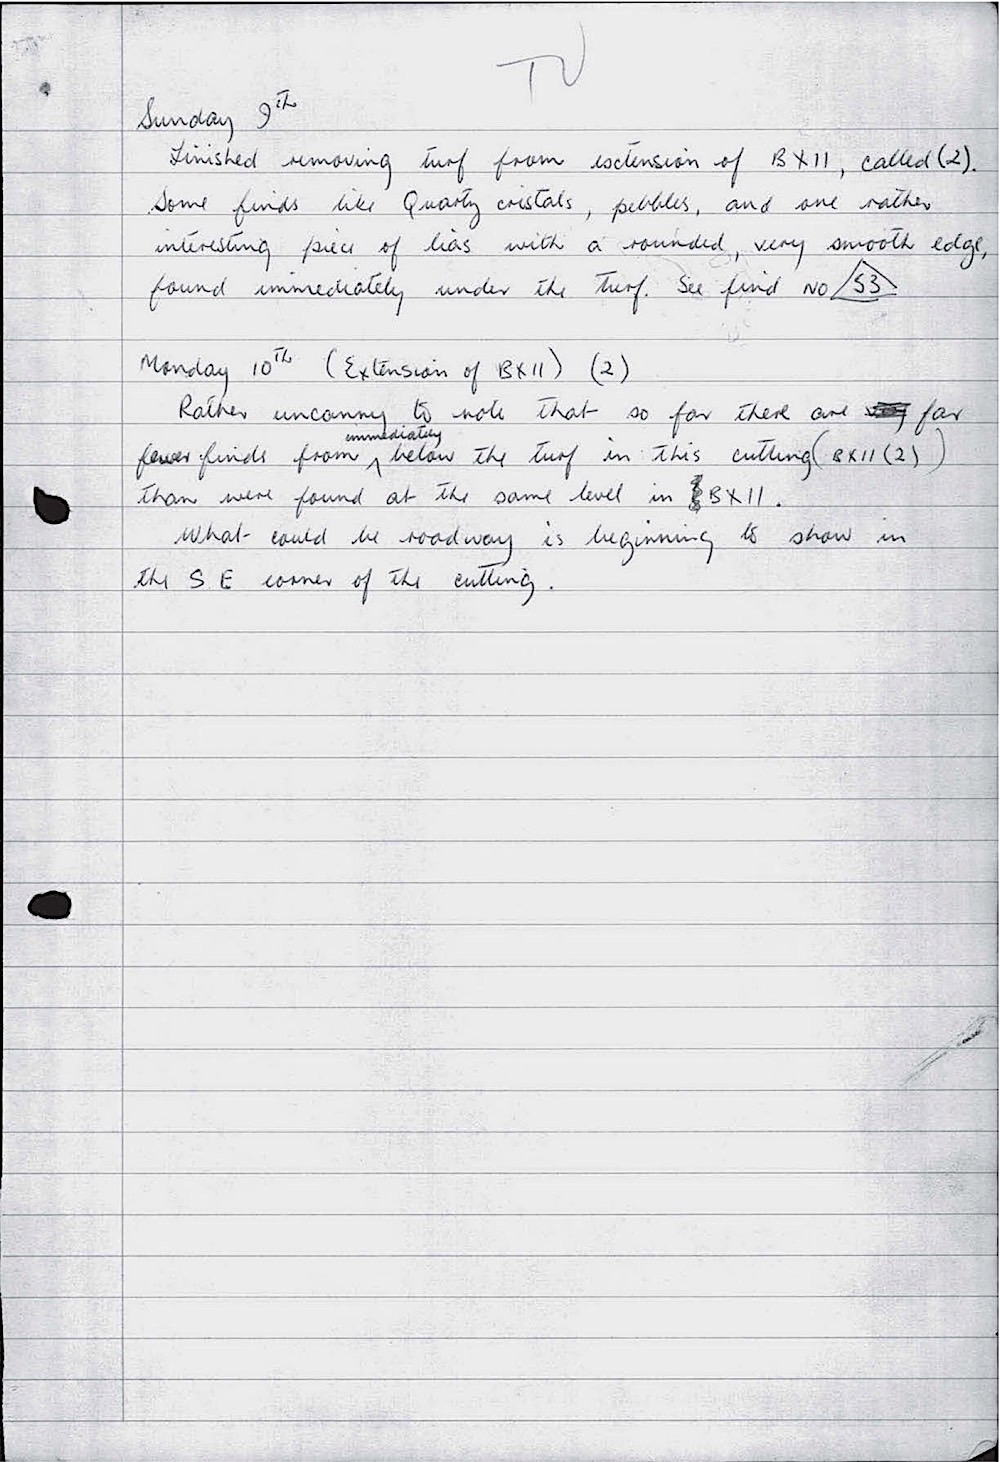 TV
Sunday 9th
Finished removing turf from extension of BXII, called (2).
Some finds like Quartz cristals, pebbles, and one rather
interesting piece of lias with a rounded, very smooth edge,
found immediately under the turf. See find No 53
Monday 10th (Extension of BXII) (2)
Rather uncanny to note that so far there are far
fewer finds from immediately below the turf in this cutting (BXII (2))
than were found at the same level in BXII.
What could be roadway is beginning to show in
the SE corner of the cutting.